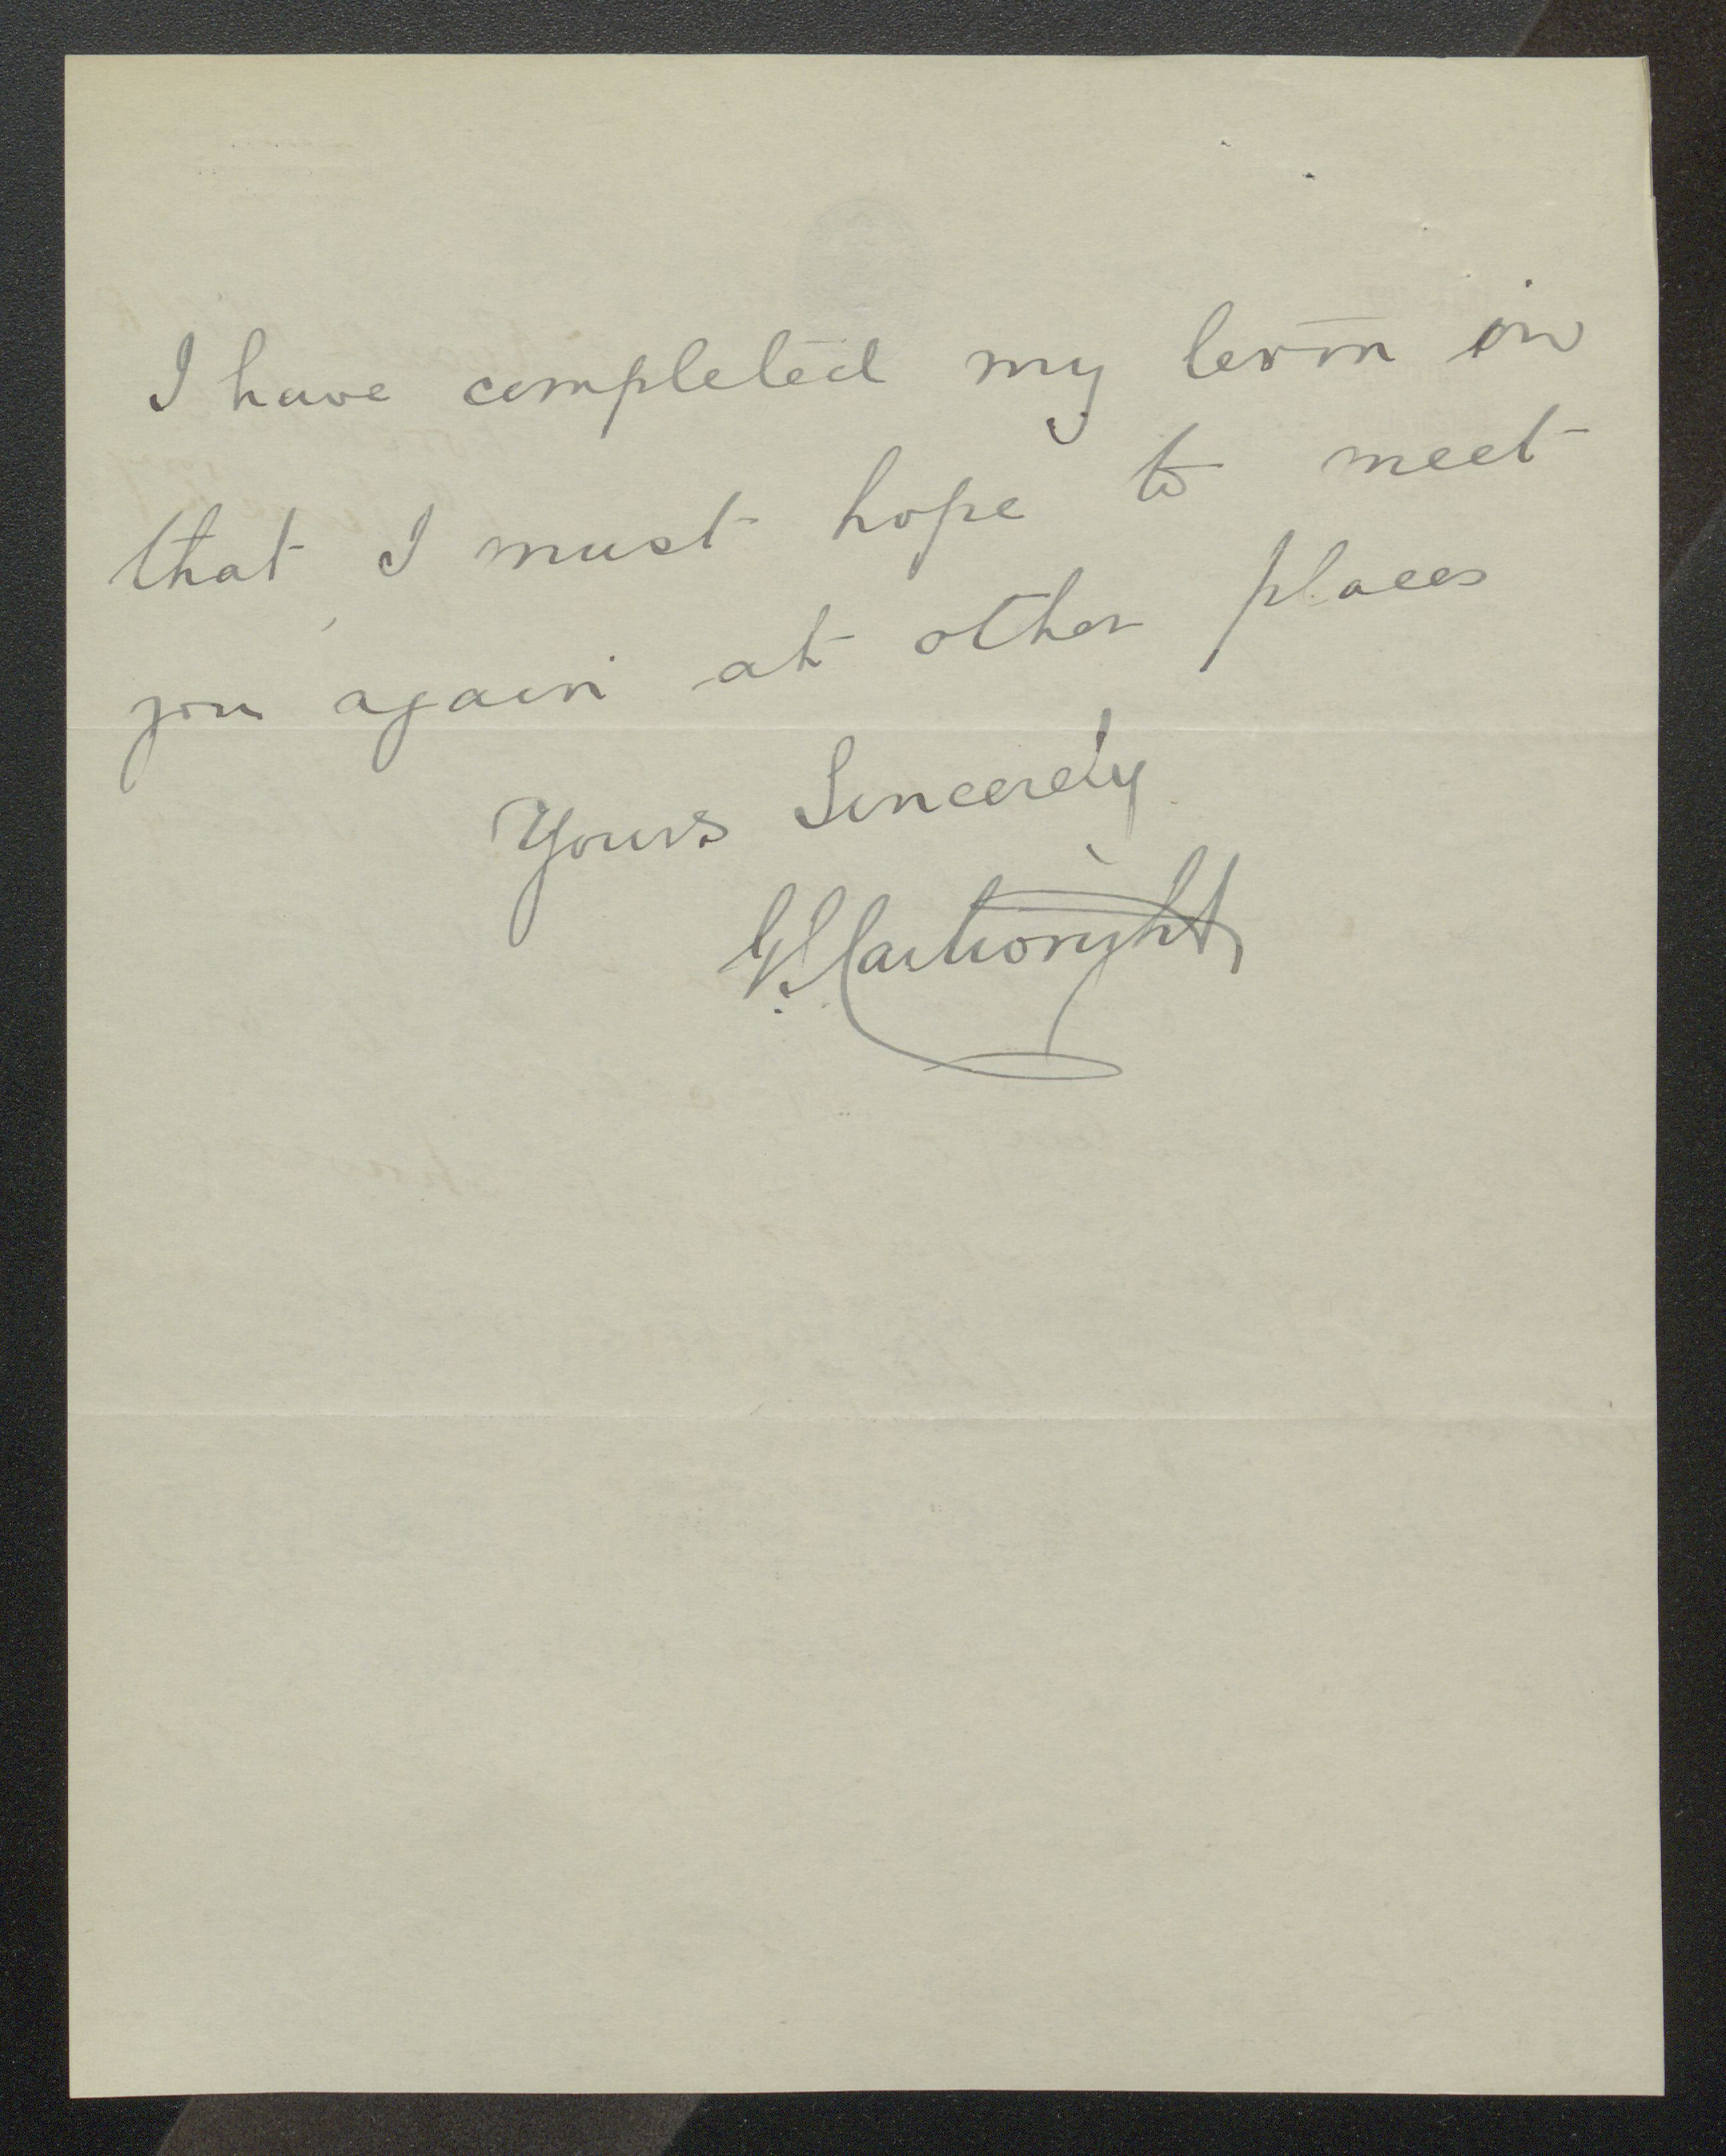 I have completed my term in
that I must hope to meet
you again at other places
Yours Sincerely
Cartwright